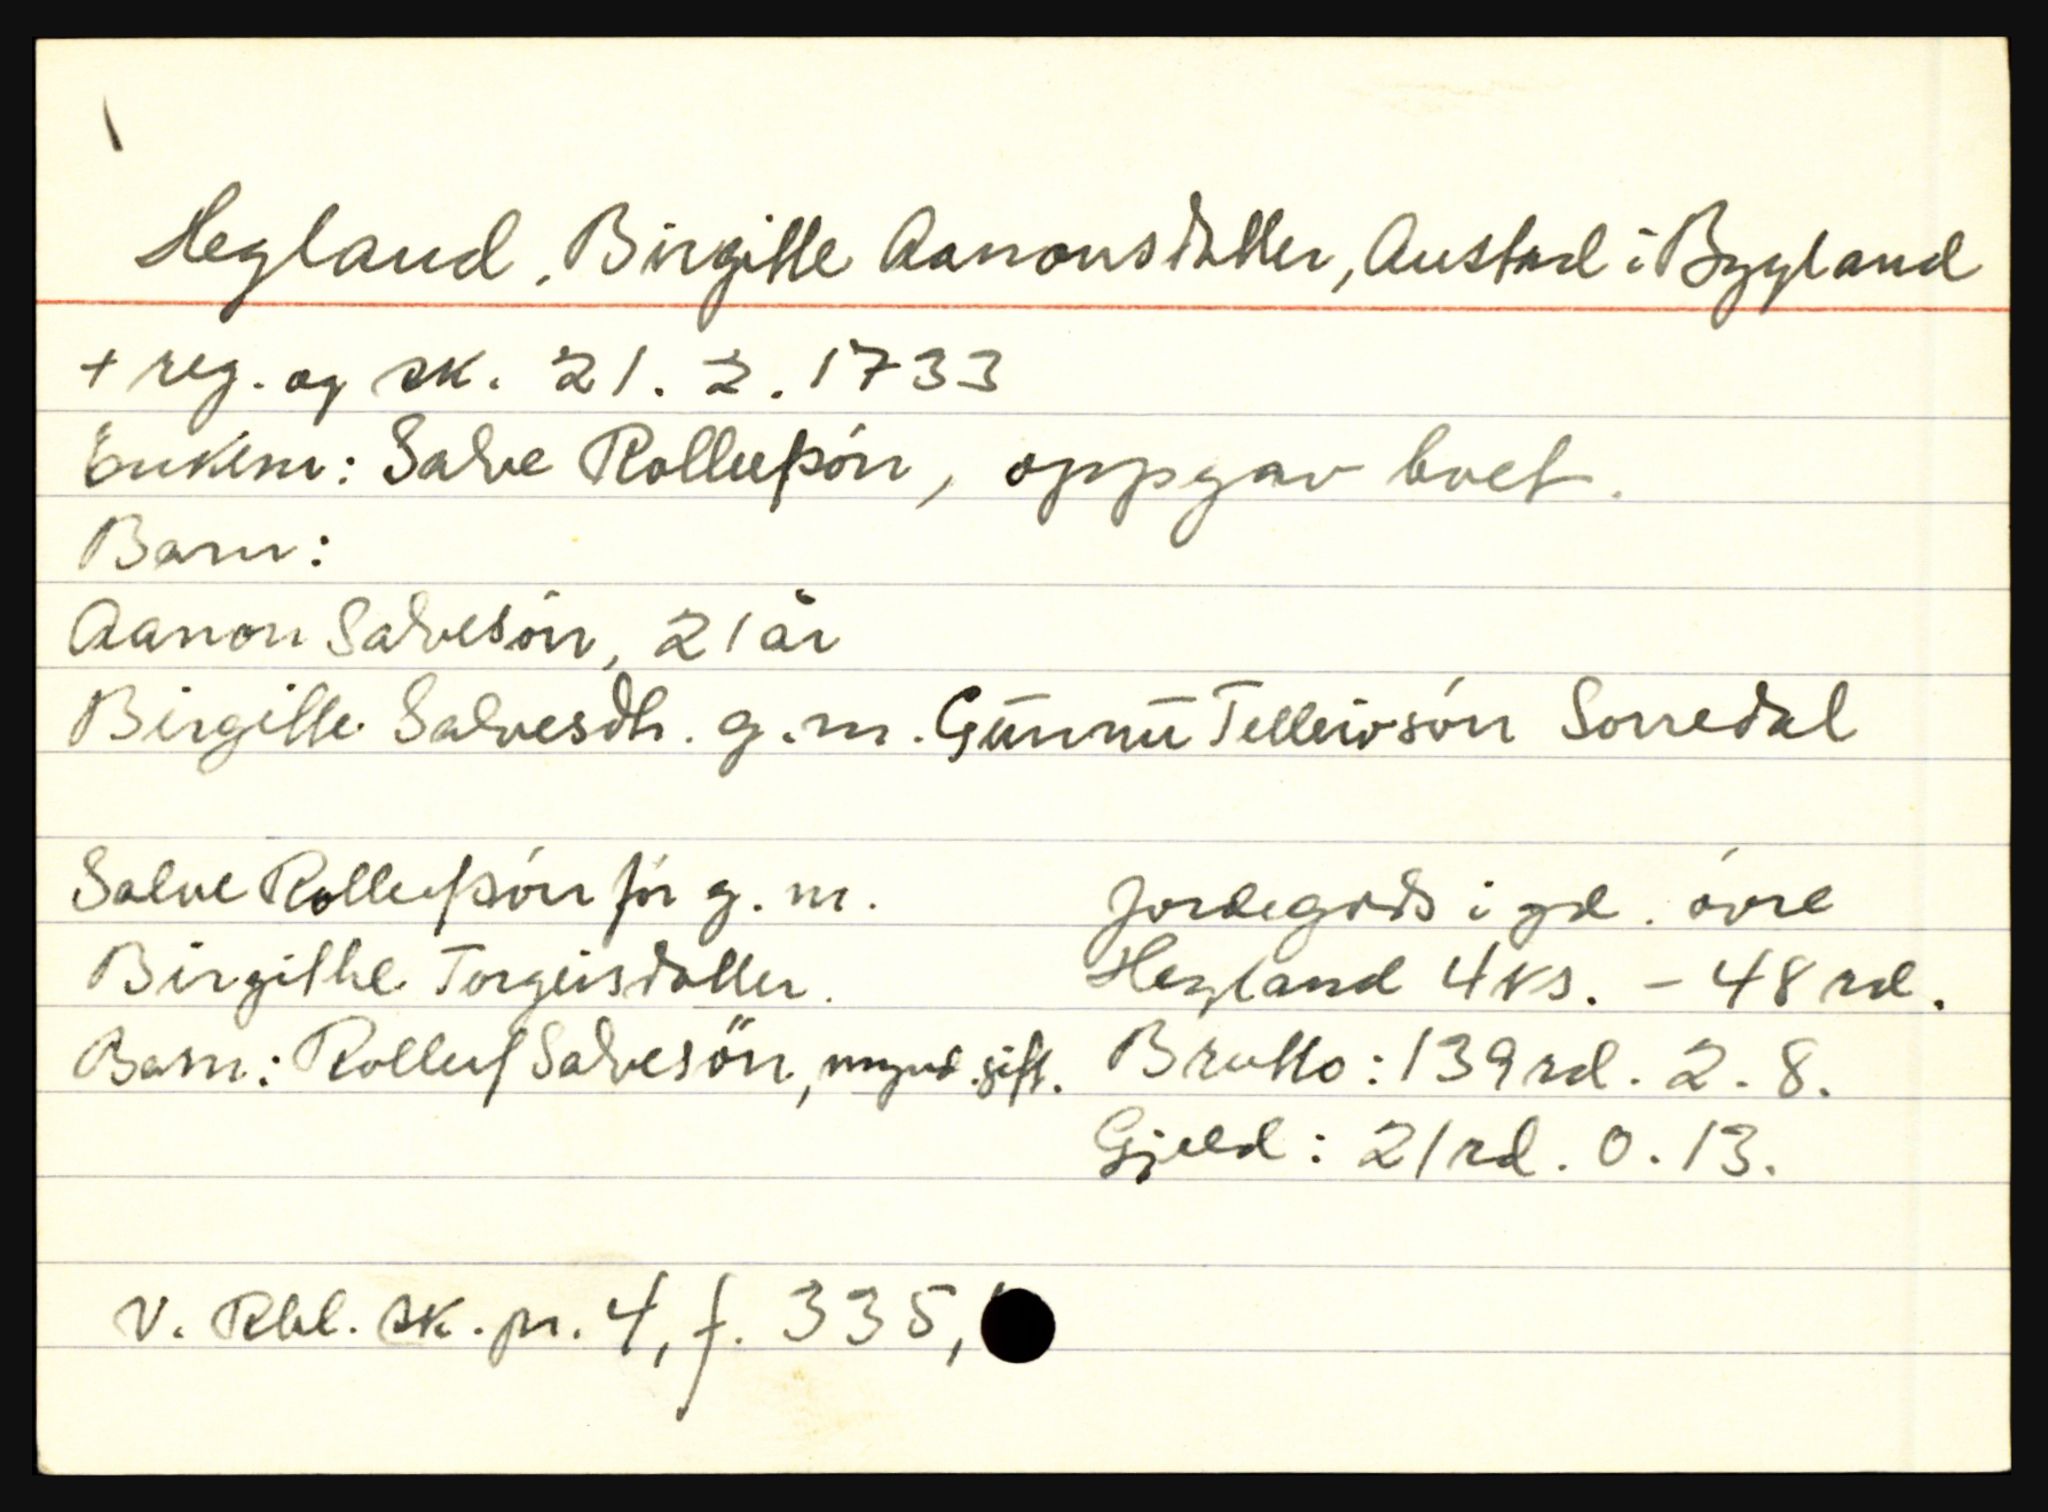 Hegland, Birgitte Aanonsdatter, Austad i Bygland
+ reg. og sk. 21. 2. 1733
Enkem: Salve Rollefsón, oppgav boet.
Barn:
Aanon Salvesón, 21 år
Birgitte Salvesdtr. g.m. Gunnu Tellevsón Sorredal
Salve Rollefsón før g. m.
Birgithe Torgeisdatter.
Barn: Rollef Salvesön, mynd. gift.
Jordegods i gd. óvre
Hegland 4 ks. - 48 rd.
Brutto: 139 rd. 2. 8.
Gjeld: 21 rd. 0. 13.
V. Rbl. sk. pr. 4, f. 335,